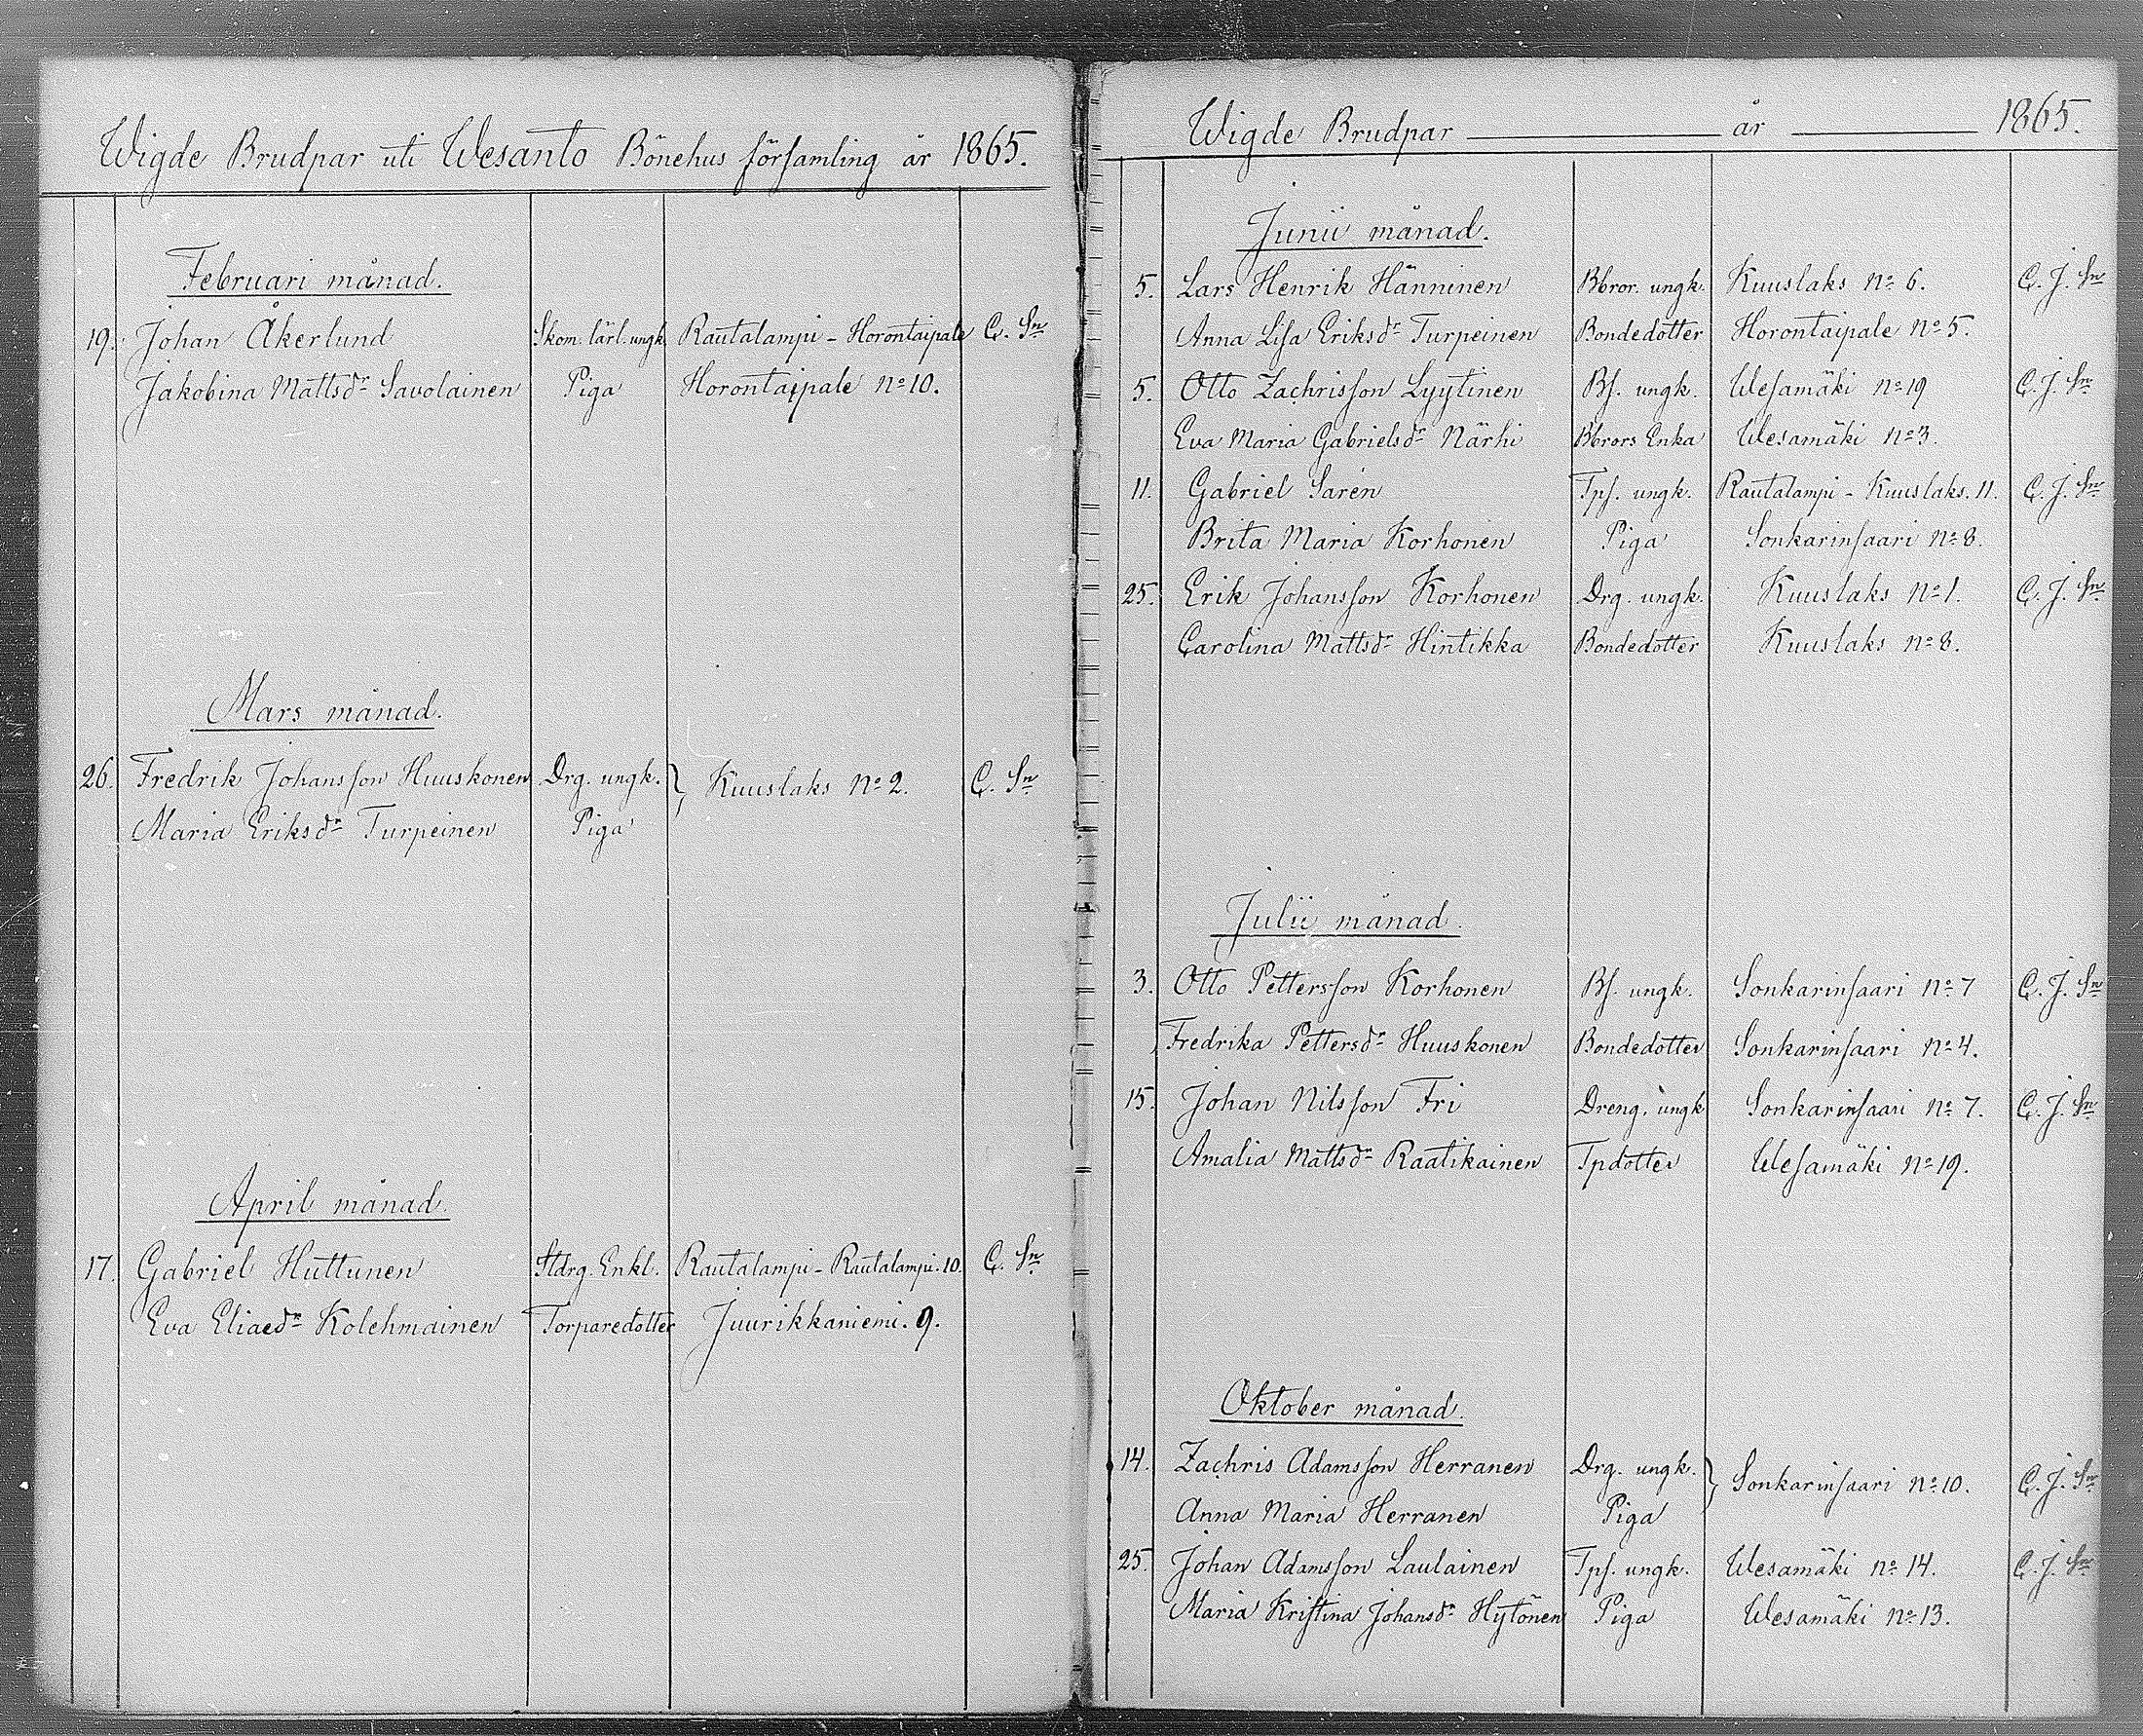 Wigde Brudpar uti Wesanto Bönehus församling år 1865.
Februari månad.
19. Johan Åkerlund Skom. lärl. ungk. Rautalampi - Horontaipale C. Sn
Jakobina Mattsdr Savolainen Piga Horontaipale No 10.
Mars månad.
26. Fredrik Johansson Huuskonen Drg. ungk. } Kuuslaks No 2. C. Sn
Maria Eriksdr Turpeinen Piga
April månad.
17. Gabriel Huttunen Stdrg. Enkl. Rautalampi - Rautalampi. 10. C. Sn
Eva Eliaedr Kolehmainen Torparedotter Juurikkaniemi. 9.
Wigde Brudpar år 1865.
Junii månad.
5. Lars Henrik Hänninen Bbror. ungk. Kuuslaks No 6. C. J. Sn
Anna Lisa Eriksdr Turpeinen Bondedotter Horontaipale No 5.
5. Otto Zachrisson Lyytinen Bs. ungk. Wesamäki No 19 C. J. Sn
Eva Maria Gabrielsdr Närhi Bbrors Enka Wesamäki No 3.
11. Gabriel Sarén Tps. ungk. Rautalampi - Kuuslaks. 11. C. J. Sn
Brita Maria Korhonen Piga Sonkarinsaari No 8.
25. Erik Johansson Korhonen Drg. ungk. Kuuslaks No 1. C. J. Sn
Carolina Mattsdr Hintikka Bondedotter Kuuslaks No 8.
Julii månad.
3. Otto Pettersson Korhonen Bs. ungk. Sonkarinsaari No 7 C. J. Sn
Fredrika Pettersdr Huuskonen Bondedotter Sonkarinsaari No 4.
15. Johan Nilsson Fri Dreng. ungk Sonkarinsaari No 7. C. J. Sn
Amalia Mattsdr Raatikainen Tpdotter Wesamäki No 19.
Oktober månad.
14. Zachris Adamsson Herranen Drg. ungk. } Sonkarinsaari No 10. C. J. Sn
Anna Maria Herranen Piga
25. Johan Adamsson Laulainen Tps. ungk. Wesamäki No 14. C. J. Sn
Maria Kristina Johansdr Hytönen Piga Wesamäki No 13.